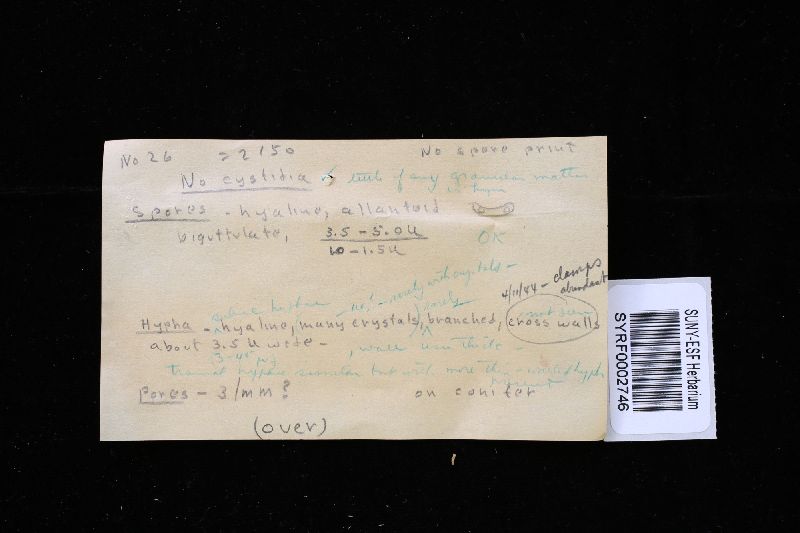 No 26 = 2150 No spore print
No cystidia & little if any granular matter
in hyphae
Spores - hyaline, allantoid
biguttulate, 3.5 - 5.0 u OK
10 - 1.5 u
4/11/44 - clamps
abundant
hyphae - no! - rarely with crystals -
rarely not seen
Hypha - hyaline, many crystals, branched, cross walls
about 3.5 u wide - , walls
tramal hyphae similar but with more thin - walled hyphae
present
Pores - 3/mm? on conifer
(over)
SUNY-ESF Herbarium
SYRF0002746